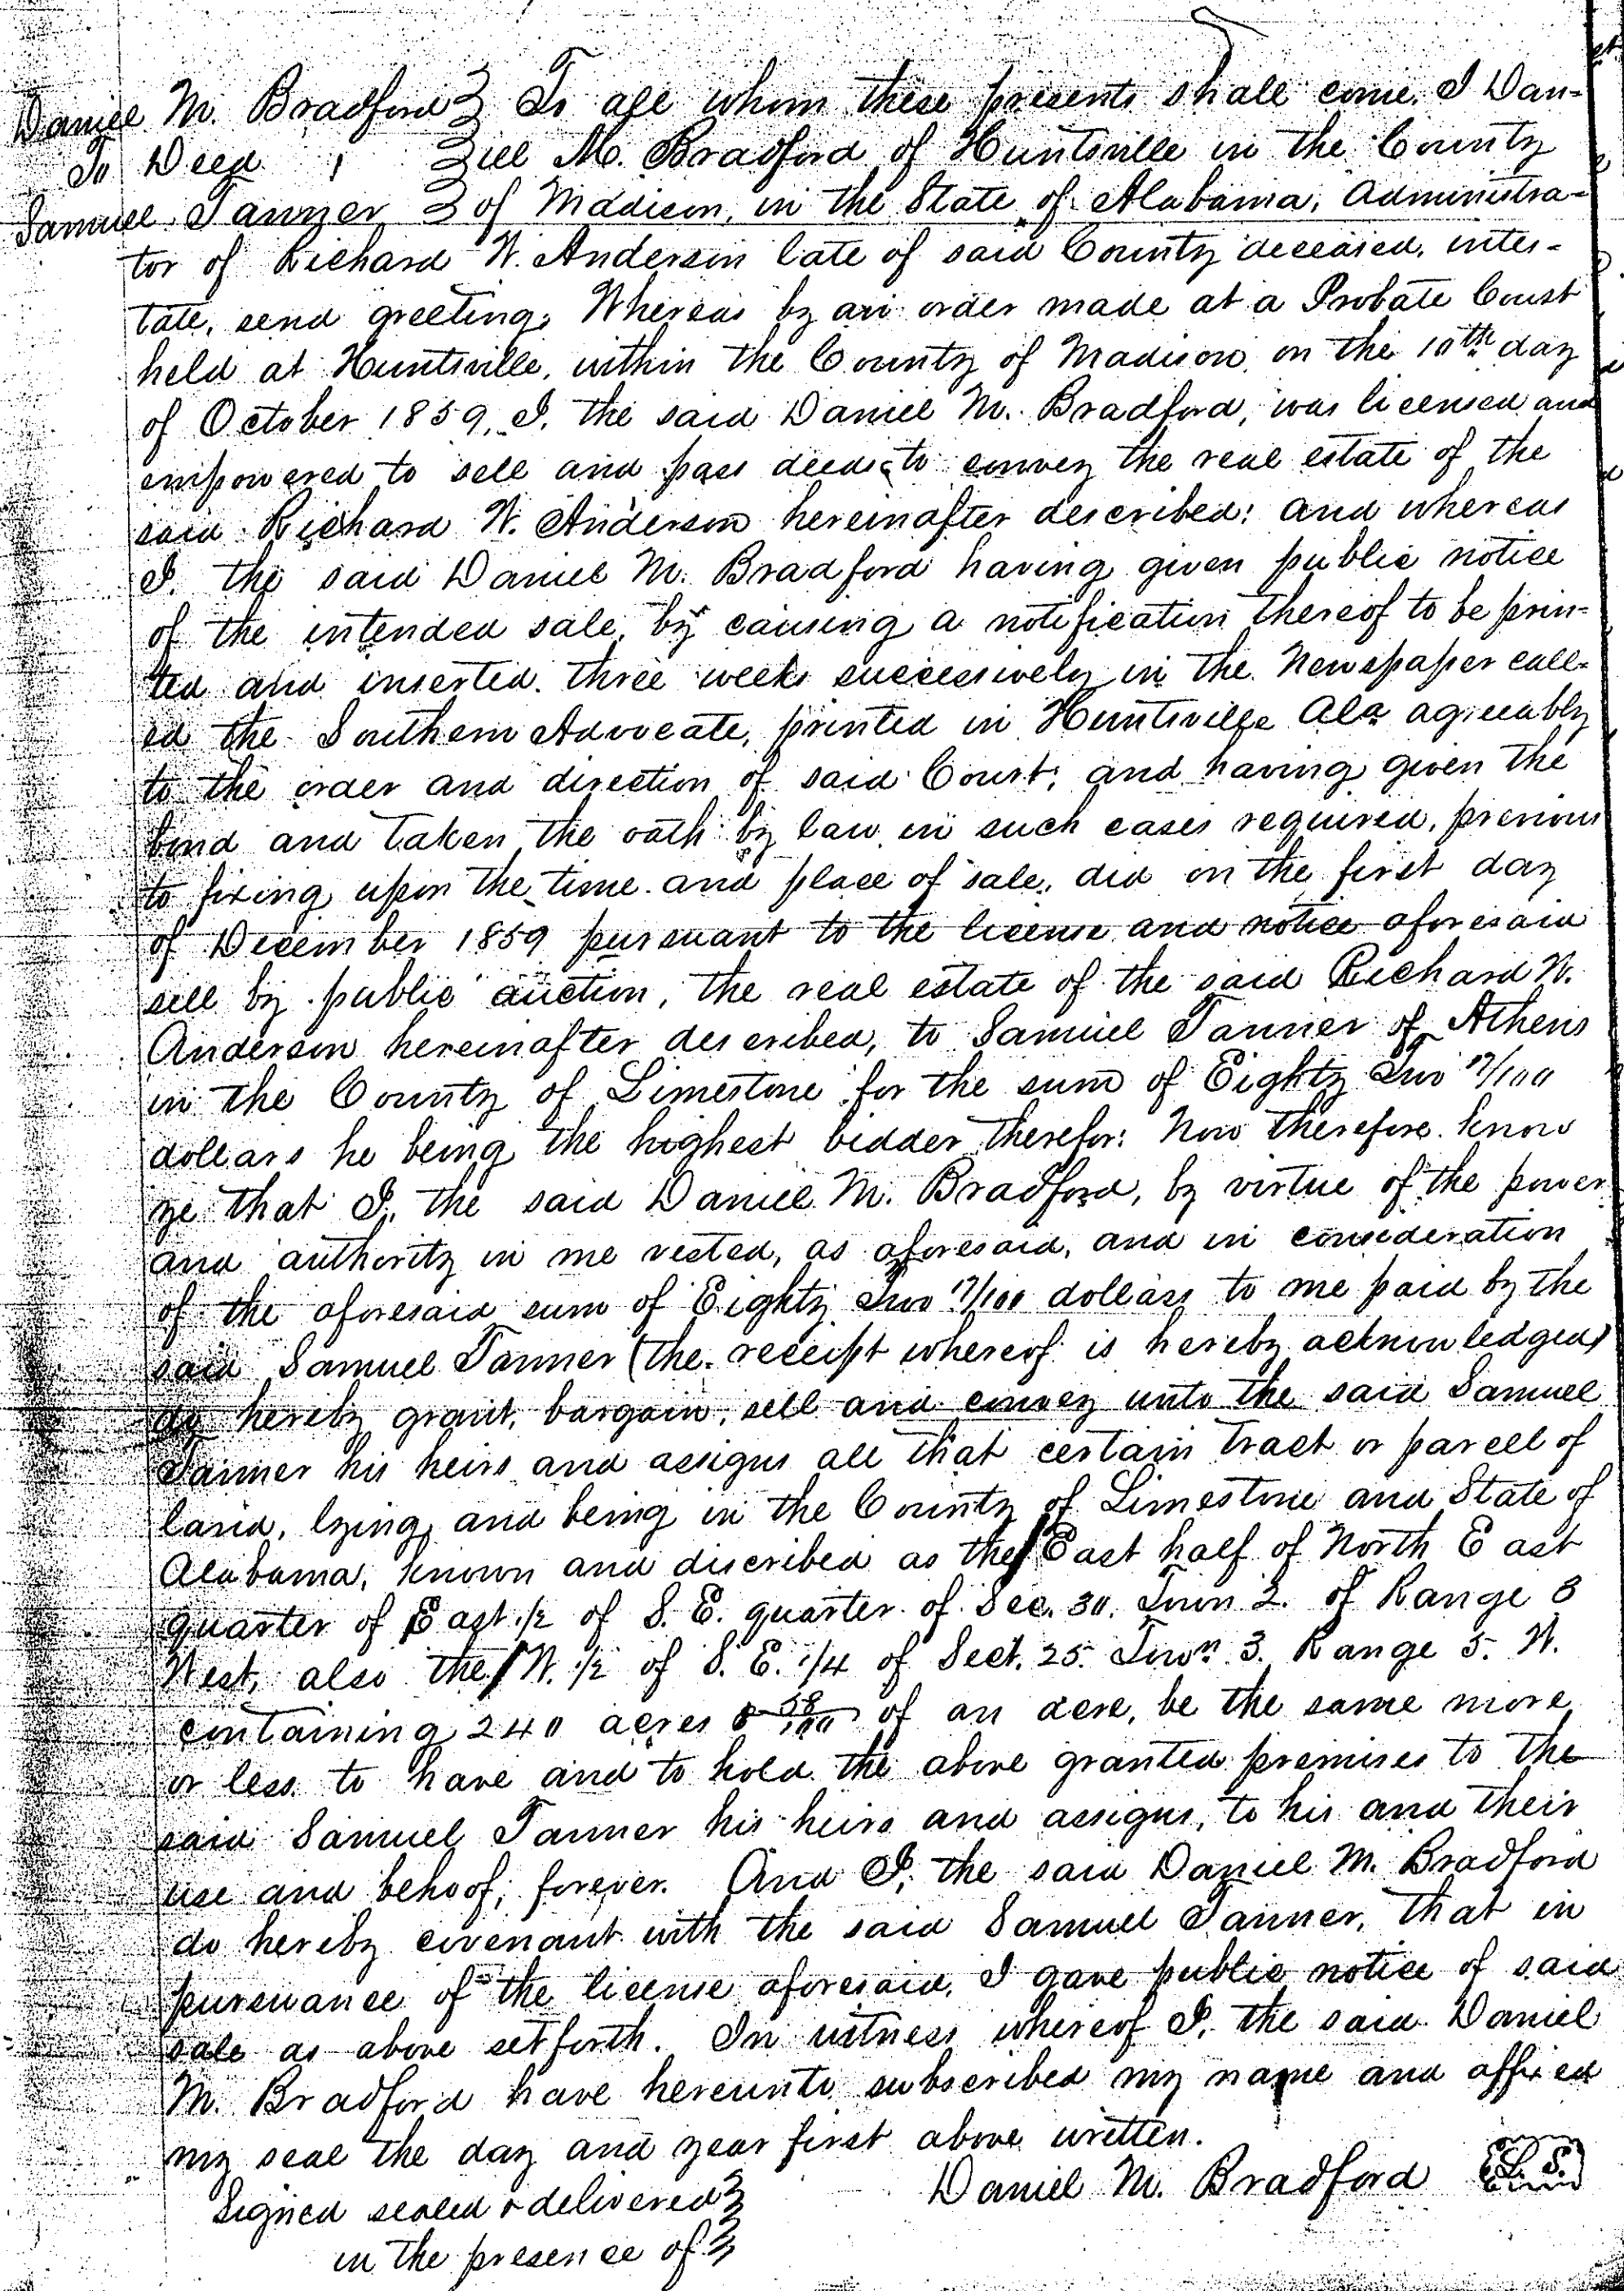 Daniel M. Bradford } To all whom these presents shall come, I Dan-
To Deed } iel M. Bradford of Huntsville in the County
Samuel Tanner } of Madison, in the State of Alabama, Administra-
tor of Richard W. Anderson late of said County deceased, intes-
tate, send greeting, Whereas by an order made at a Probate Court
held at Huntsville, within the County of Madison on the 10th day
of October 1859, I, the said Daniel M. Bradford, was licensed and
empowered to sell and pass deeds to convey the real estate of the
said Richard W. Anderson hereinafter described: and whereas
I. the said Daniel M. Bradford having given public notice
of the intended sale, by causing a notification thereof to be prin-
ted and inserted three weeks successively in the Newspaper call-
ed the Southern Advocate, printed in Huntsville Ala agreeably
to the order and direction of said Court; and having given the
bond and taken the oath by law in such cases required, previous
to fixing upon the time and place of sale, did on the first day
of December 1859 pursuant to the license and notice aforesaid
sell by public auction, the real estate of the said Richard W.
Anderson hereinafter described, to Samuel Tanner of Athens
in the County of Limestone for the sum of Eighty Two 17/100
dollars he being the highest bidder therefor: Now therefore know
ye that I, the said Daniel M. Bradford, by virtue of the power
and authority in me vested, as aforesaid, and in consideration
of the aforesaid sum of Eighty Two 17/100 dollars to me paid by the
said Samuel Tanner (the receipt whereof is hereby acknowledged)
do hereby grant, bargain, sell and convey unto the said Samuel
Tanner his heirs and assigns all that certain tract or parcell of
land, lying and being in the County of Limestone and State of
Alabama, known and discribed as the East half of North East
quarter of East 1/2 of S. E. quarter of Sec. 30. Town 2. of Range 3
West, also the W. 1/2 of S. E. 1/4 of Sect. 25. Town 3. Range 5. W.
containing 240 acres & 58/100 of an acre, be the same more
or less to have and to hold the above granted premises to the
said Samuel Tanner his heirs and assigns, to his and their
use and behoof, forever. And I, the said Daniel M. Bradford
do hereby covenant with the said Samuel Tanner, that in
pursuance of the license aforesaid, I gave public notice of said
sale as above set forth. In witness whereof I, the said Daniel
M. Bradford have hereunto subscribed my name and affixed
my seal the day and year first above written.
Daniel M. Bradford {L. S.}
Signed sealed & delivered }
in the presence of }